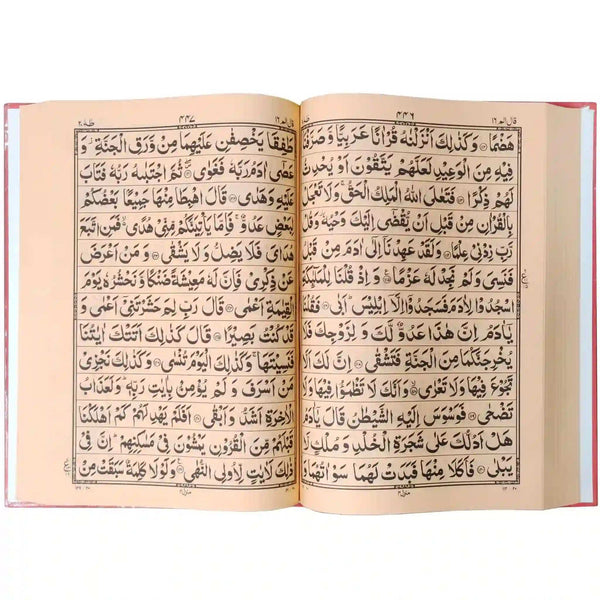 قال الم ١٦
٤٤٦
هَضْمًا ۝ وَكَذٰلِكَ اَنْزَلْنٰهُ قُرْاٰنًا عَرَبِيًّا وَّ صَرَّفْنَا
فِيْهِ مِنَ الْوَعِيْدِ لَعَلَّهُمْ يَتَّقُوْنَ اَوْ يُحْدِثُ
لَهُمْ ذِكْرًا ۝ فَتَعٰلَى اللّٰهُ الْمَلِكُ الْحَقُّ ۚ وَلَا تَعْجَلْ
بِالْقُرْاٰنِ مِنْ قَبْلِ اَنْ يُّقْضٰٓى اِلَيْكَ وَحْيُهٗ ۫ وَقُلْ
رَّبِّ زِدْنِيْ عِلْمًا ۝ وَلَقَدْ عَهِدْنَآ اِلٰٓى اٰدَمَ مِنْ قَبْلُ
فَنَسِيَ وَلَمْ نَجِدْ لَهٗ عَزْمًا ۝ وَ اِذْ قُلْنَا لِلْمَلٰٓئِكَةِ
اسْجُدُوْا لِاٰدَمَ فَسَجَدُوْٓا اِلَّآ اِبْلِيْسَ ؕ اَبٰى ۝ فَقُلْنَا
يٰٓاٰدَمُ اِنَّ هٰذَا عَدُوٌّ لَّكَ وَ لِزَوْجِكَ فَلَا
يُخْرِجَنَّكُمَا مِنَ الْجَنَّةِ فَتَشْقٰى ۝ اِنَّ لَكَ اَلَّا
تَجُوْعَ فِيْهَا وَلَا تَعْرٰى ۝ وَاَنَّكَ لَا تَظْمَؤُا فِيْهَا وَلَا
تَضْحٰى ۝ فَوَسْوَسَ اِلَيْهِ الشَّيْطٰنُ قَالَ يٰٓاٰدَمُ
هَلْ اَدُلُّكَ عَلٰى شَجَرَةِ الْخُلْدِ وَ مُلْكٍ لَّا
يَبْلٰى ۝ فَاَكَلَا مِنْهَا فَبَدَتْ لَهُمَا سَوْاٰتُهُمَا وَ
منزل ٤
قال الم ١٦
٤٤٧
طٰهٰ ٢٠
طَفِقَا يَخْصِفٰنِ عَلَيْهِمَا مِنْ وَّرَقِ الْجَنَّةِ ۫ وَ
عَصٰٓى اٰدَمُ رَبَّهٗ فَغَوٰى ۝ ثُمَّ اجْتَبٰىهُ رَبُّهٗ فَتَابَ
عَلَيْهِ وَهَدٰى ۝ قَالَ اهْبِطَا مِنْهَا جَمِيْعًاۢ بَعْضُكُمْ
لِبَعْضٍ عَدُوٌّ ۚ فَاِمَّا يَاْتِيَنَّكُمْ مِّنِّيْ هُدًى ۙ فَمَنِ اتَّبَعَ
هُدَايَ فَلَا يَضِلُّ وَ لَا يَشْقٰى ۝ وَ مَنْ اَعْرَضَ
عَنْ ذِكْرِيْ فَاِنَّ لَهٗ مَعِيْشَةً ضَنْكًا وَّ نَحْشُرُهٗ يَوْمَ
الْقِيٰمَةِ اَعْمٰى ۝ قَالَ رَبِّ لِمَ حَشَرْتَنِيْٓ اَعْمٰى وَ
قَدْ كُنْتُ بَصِيْرًا ۝ قَالَ كَذٰلِكَ اَتَتْكَ اٰيٰتُنَا
فَنَسِيْتَهَا ۚ وَكَذٰلِكَ الْيَوْمَ تُنْسٰى ۝ وَكَذٰلِكَ نَجْزِيْ
مَنْ اَسْرَفَ وَ لَمْ يُؤْمِنْۢ بِاٰيٰتِ رَبِّهٖ ؕ وَلَعَذَابُ
الْاٰخِرَةِ اَشَدُّ وَ اَبْقٰى ۝ اَفَلَمْ يَهْدِ لَهُمْ كَمْ اَهْلَكْنَا
قَبْلَهُمْ مِّنَ الْقُرُوْنِ يَمْشُوْنَ فِيْ مَسٰكِنِهِمْ ؕ اِنَّ فِيْ
ذٰلِكَ لَاٰيٰتٍ لِّاُولِي النُّهٰى ۝ وَلَوْلَا كَلِمَةٌ سَبَقَتْ مِنْ
منزل ٤